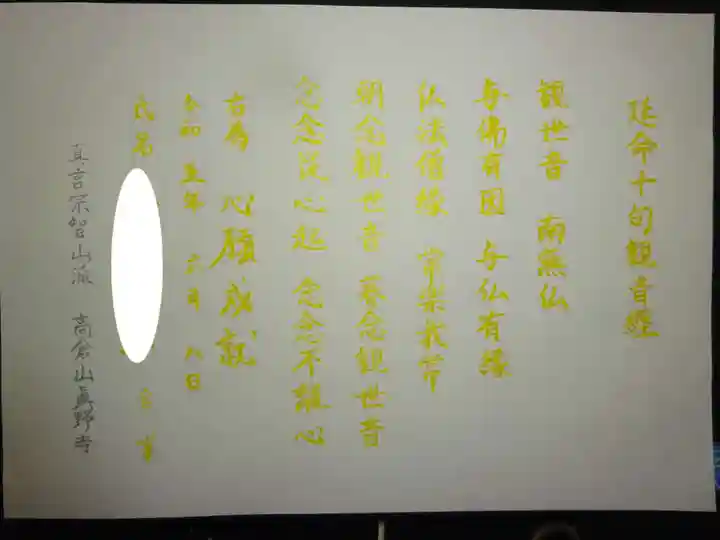 延命十句観音経
観世音 南無仏
与佛有因 与仏有縁
仏法僧縁 常楽我常
朝念観世音 暮念観世音
念念従心起 念念不離心
右為 心願成就
令和 五年 六月 八日
氏名
真言宗智山派 高倉山眞野寺